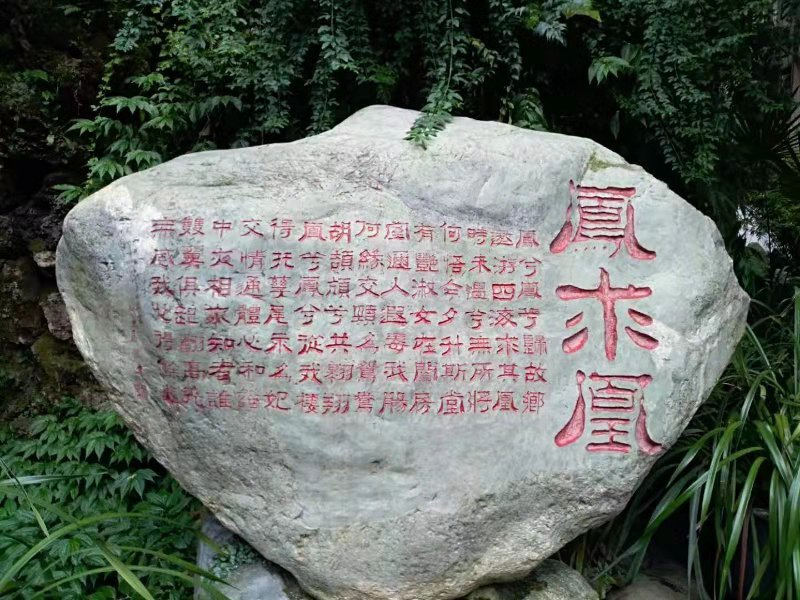 鳳求凰
鳳兮鳳兮歸故鄉
遨游四海求其凰
時未遇兮無所將
何悟今夕升斯堂
有艷淑女在閨房
室邇人遐毒我腸
何緣交頸為鴛鴦
胡頡頏兮共翱翔
鳳兮鳳兮從我棲
得托孳尾永為妃
交情通體心和諧
中夜相從知者誰
雙翼俱起翻高飛
無感我思使余悲